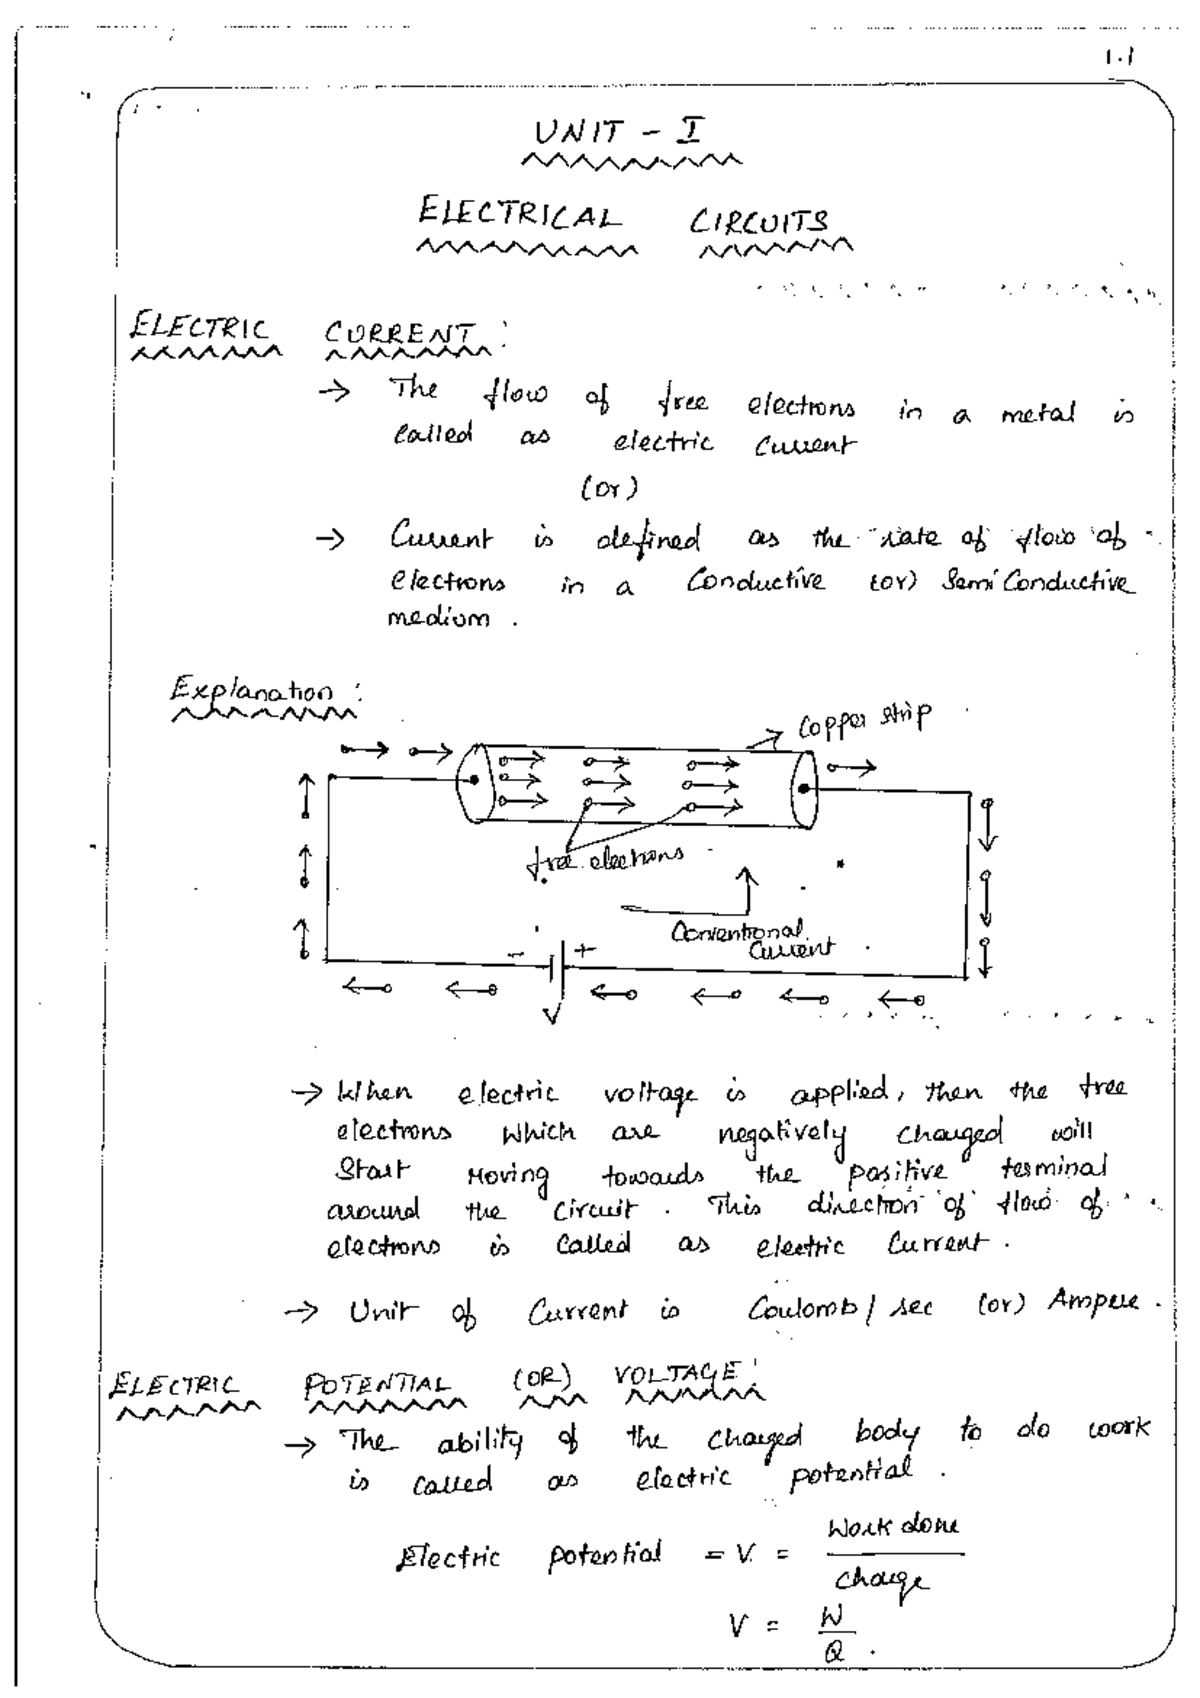 1.1
UNIT - I
ELECTRICAL CIRCUITS
ELECTRIC CURRENT :
→ The flow of free electrons in a metal is
called as electric current
(or)
→ Current is defined as the rate of flow of
electrons in a conductive (or) Semi Conductive
medium .
Explanation :
Copper strip
free electrons
Conventional
Current
- +
V
→ When electric voltage is applied, then the free
electrons which are negatively charged will
start moving towards the positive terminal
around the circuit . This direction of flow of
electrons is called as electric current .
→ Unit of current is Coulomb / sec (or) Ampere .
ELECTRIC POTENTIAL (OR) VOLTAGE :
→ The ability of the charged body to do work
is called as electric potential .
Electric potential = V = Work done
charge
V = W
Q .